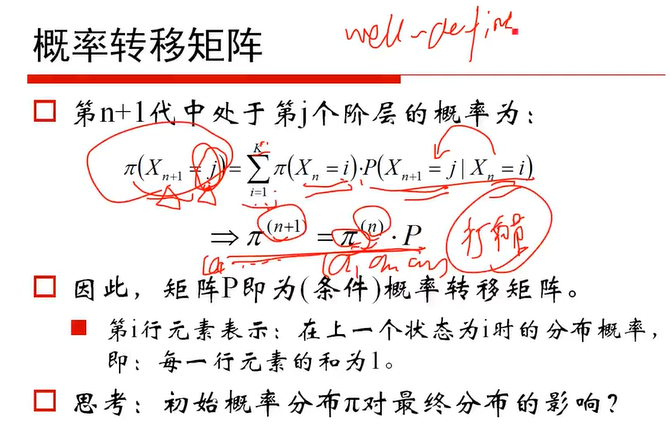 well-define
概率转移矩阵
第n+1代中处于第j个阶层的概率为:
π(X_{n+1} = j) = \sum_{i=1}^{K} π(X_n = i)·P(X_{n+1} = j | X_n = i)
⇒ π^{(n+1)} = π^{(n)} · P
因此, 矩阵P即为(条件)概率转移矩阵。
第i行元素表示: 在上一个状态为i时的分布概率,
即: 每一行元素的和为1。
思考: 初始概率分布π对最终分布的影响?